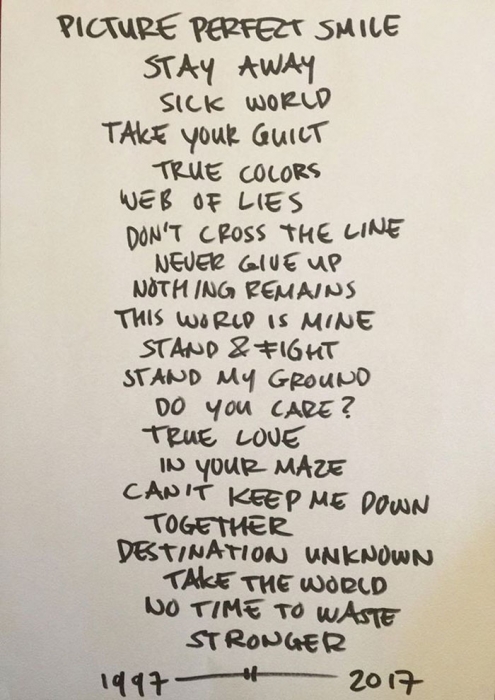 PICTURE PERFECT SMILE
STAY AWAY
SICK WORLD
TAKE YOUR GUILT
TRUE COLORS
WEB OF LIES
DON'T CROSS THE LINE
NEVER GIVE UP
NOTHING REMAINS
THIS WORLD IS MINE
STAND & FIGHT
STAND MY GROUND
DO YOU CARE?
TRUE LOVE
IN YOUR MAZE
CAN'T KEEP ME DOWN
TOGETHER
DESTINATION UNKNOWN
TAKE THE WORLD
NO TIME TO WASTE
STRONGER
1997 — 2017